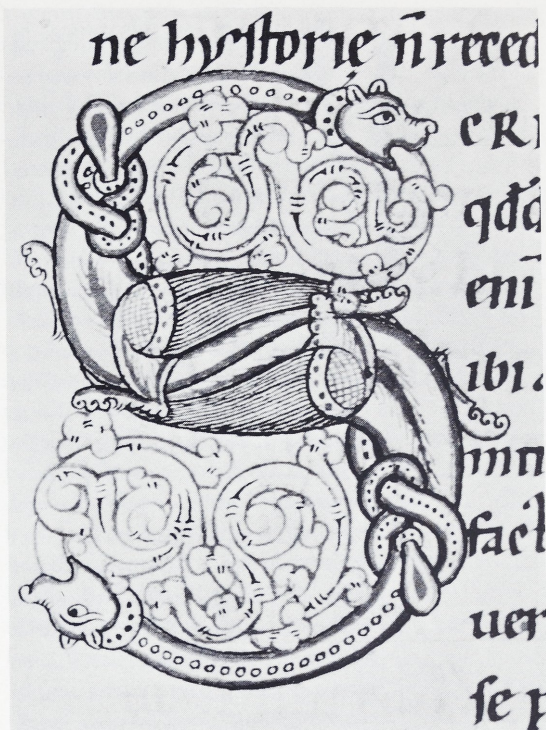 ne hystorie n̄ reced
S
ERI
qđđ
enī
ibi
fact
uer
se p